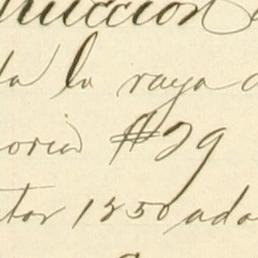 uccion
da la raya a
oria #29
tor 1250 ado